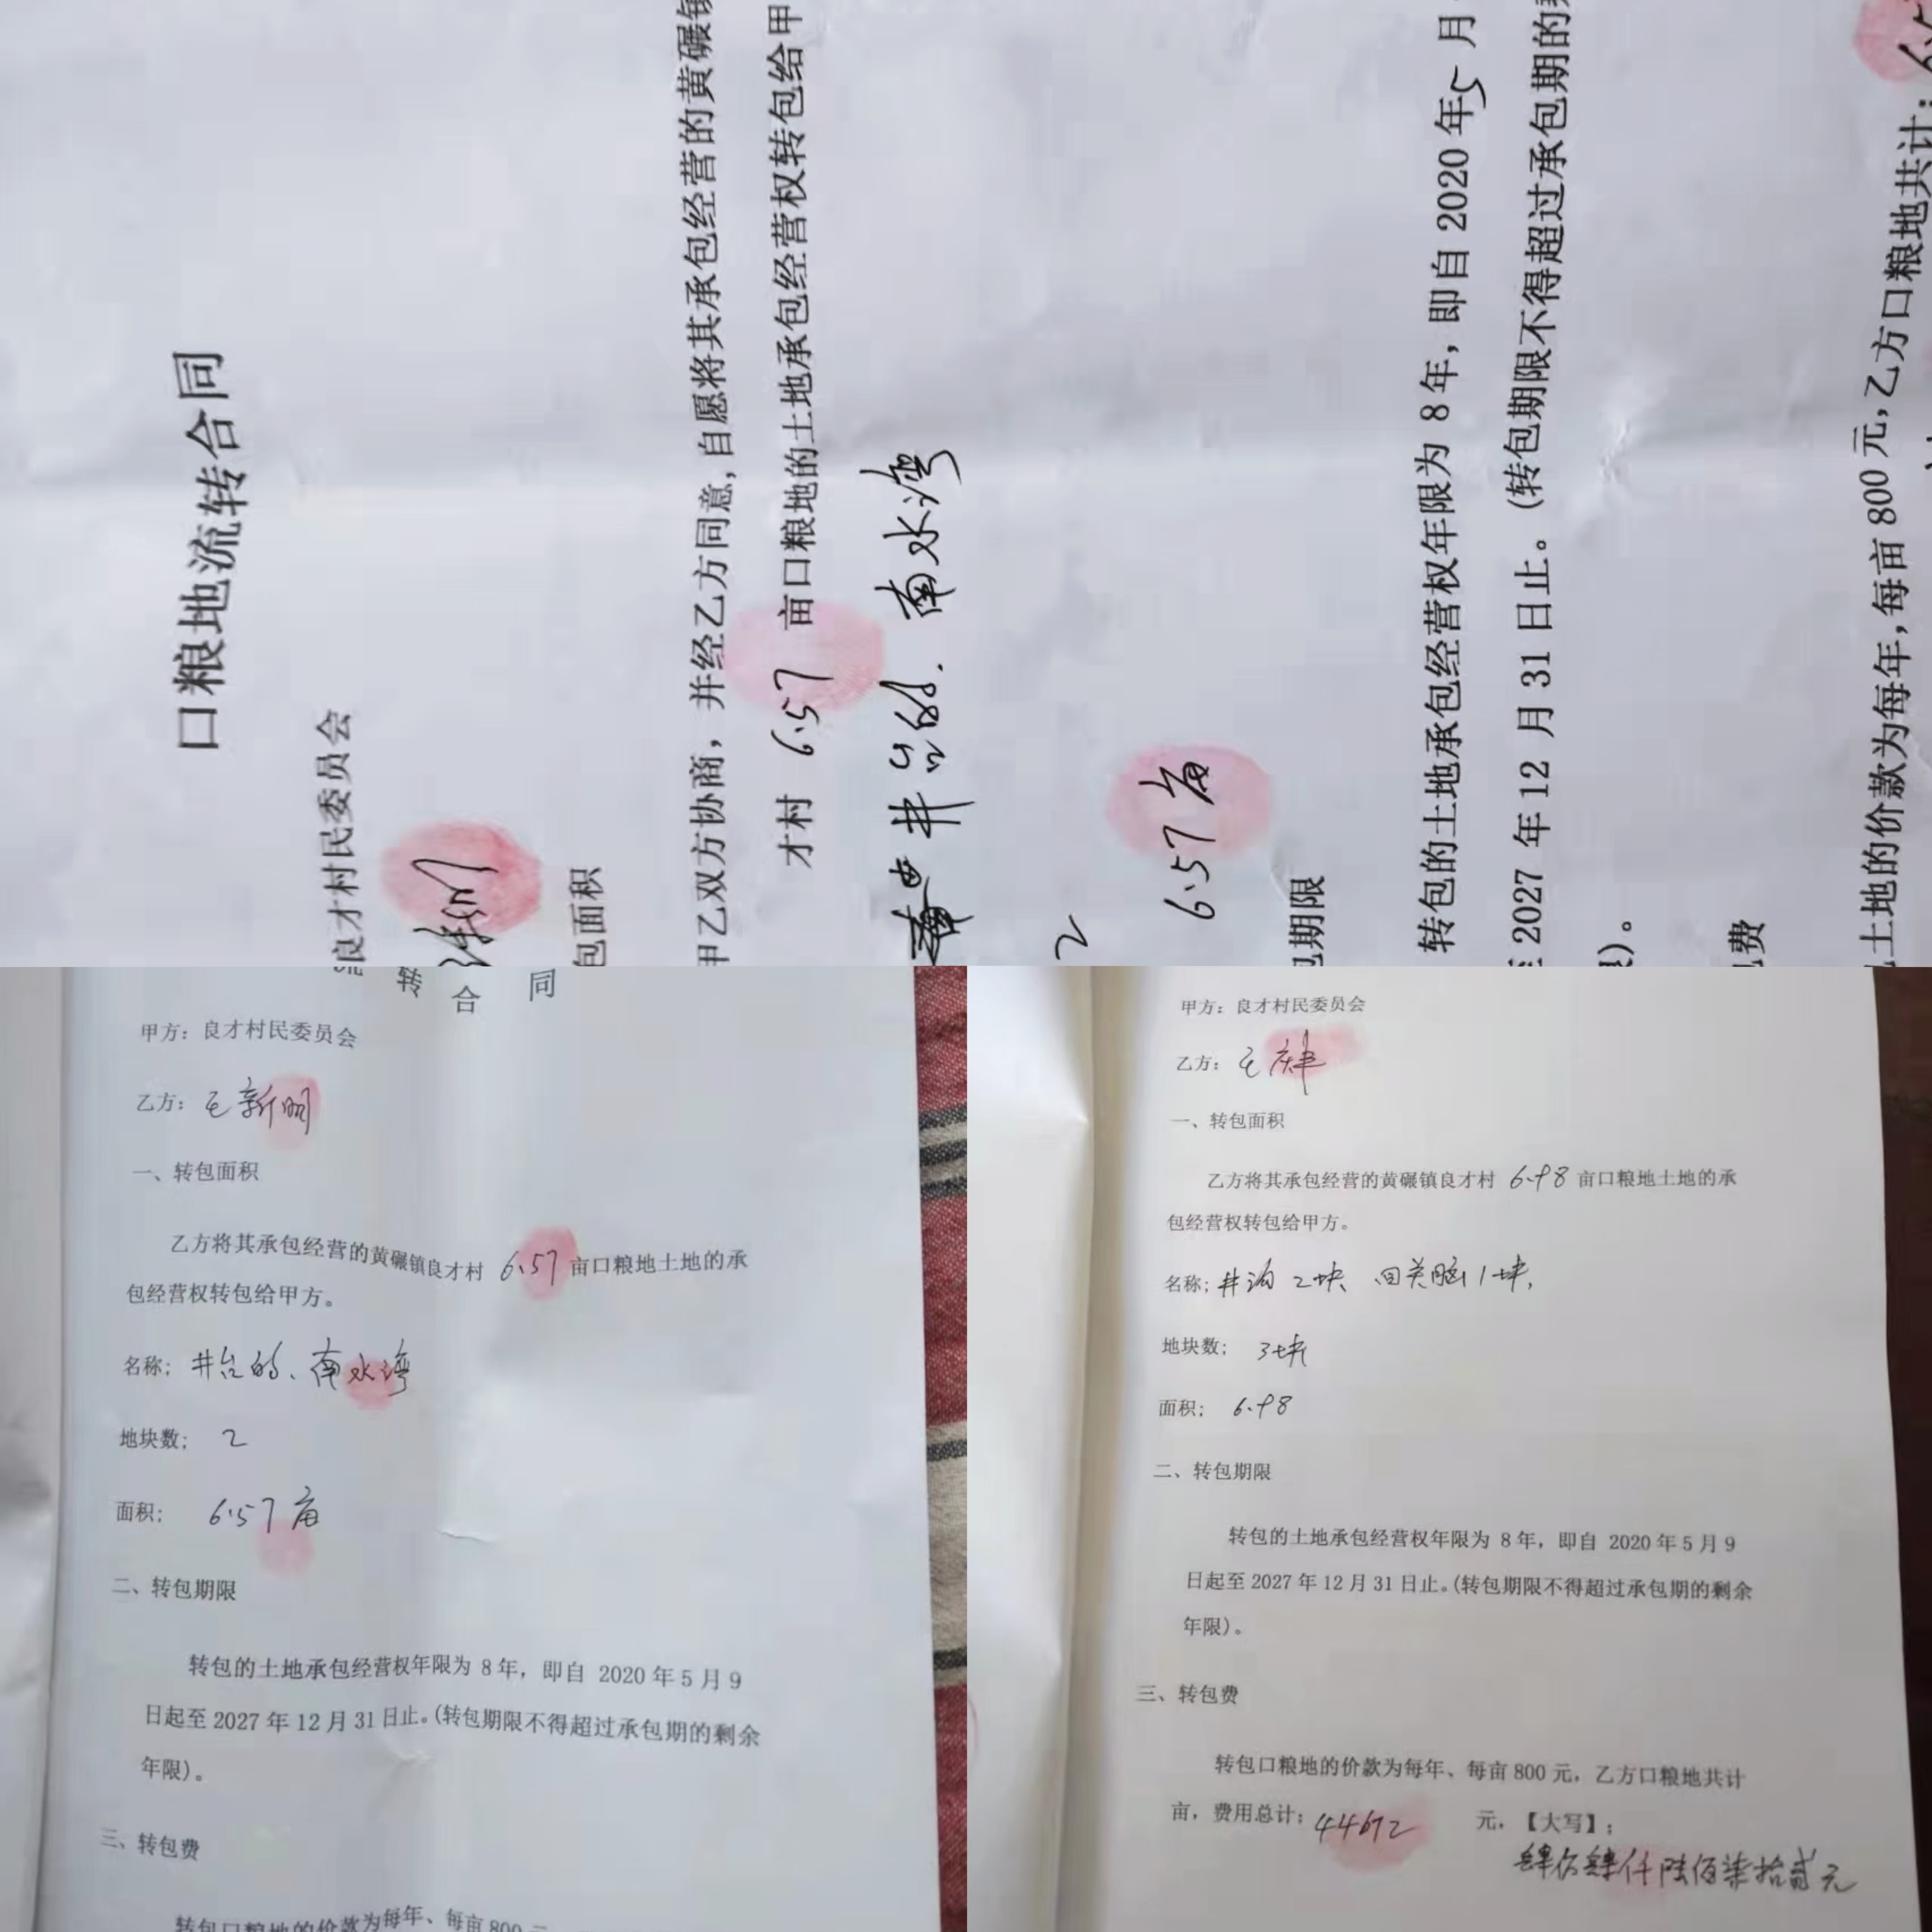 口粮地流转合同
良才村民委员会
包面积
甲乙双方协商，并经乙方同意,自愿将其承包经营的黄碾镇
才村 6.57 亩口粮地的土地承包经营权转包给甲
井台的、南水湾
2
6.57亩
包期限
转包的土地承包经营权年限为 8 年，即自 2020 年5 月
至 2027 年 12 月 31 日止。(转包期限不得超过承包期的
限)。
包费
土地的价款为每年,每亩 800 元,乙方口粮地共计:
转合同
甲方：良才村民委员会
乙方：王新明
一、转包面积
乙方将其承包经营的黄碾镇良才村 6.57 亩口粮地土地的承
包经营权转包给甲方。
名称；井台的、南水湾
地块数； 2
面积； 6.57亩
二、转包期限
转包的土地承包经营权年限为 8 年，即自 2020 年 5 月 9
日起至 2027 年 12 月 31 日止。(转包期限不得超过承包期的剩余
年限)。
三、转包费
转包口粮地的价款为每年、每亩800元
甲方：良才村民委员会
乙方：王庆丰
一、转包面积
乙方将其承包经营的黄碾镇良才村 6.98 亩口粮地土地的承
包经营权转包给甲方。
名称；井沟 2块 回关脑1块,
地块数； 3块
面积； 6.98
二、转包期限
转包的土地承包经营权年限为 8 年，即自 2020 年 5 月 9
日起至 2027 年 12 月 31 日止。(转包期限不得超过承包期的剩余
年限)。
三、转包费
转包口粮地的价款为每年、每亩 800 元，乙方口粮地共计
亩，费用总计；44672 元，【大写】；
肆万肆仟陆佰柒拾贰元